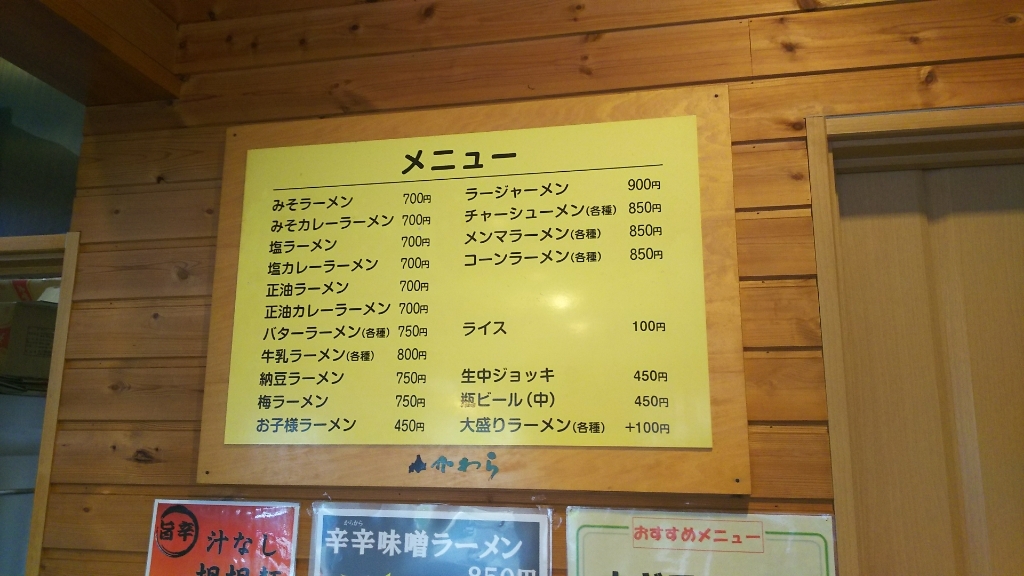 メニュー
みそラーメン 700円
みそカレーラーメン 700円
塩ラーメン 700円
塩カレーラーメン 700円
正油ラーメン 700円
正油カレーラーメン 700円
バターラーメン(各種) 750円
牛乳ラーメン(各種) 800円
納豆ラーメン 750円
梅ラーメン 750円
お子様ラーメン 450円
ラージャーメン 900円
チャーシューメン(各種) 850円
メンマラーメン(各種) 850円
コーンラーメン(各種) 850円
ライス 100円
生中ジョッキ 450円
瓶ビール(中) 450円
大盛りラーメン(各種) +100円
かわら
旨辛
汁なし
からから
辛辛味噌ラーメン
850円
おすすめメニュー